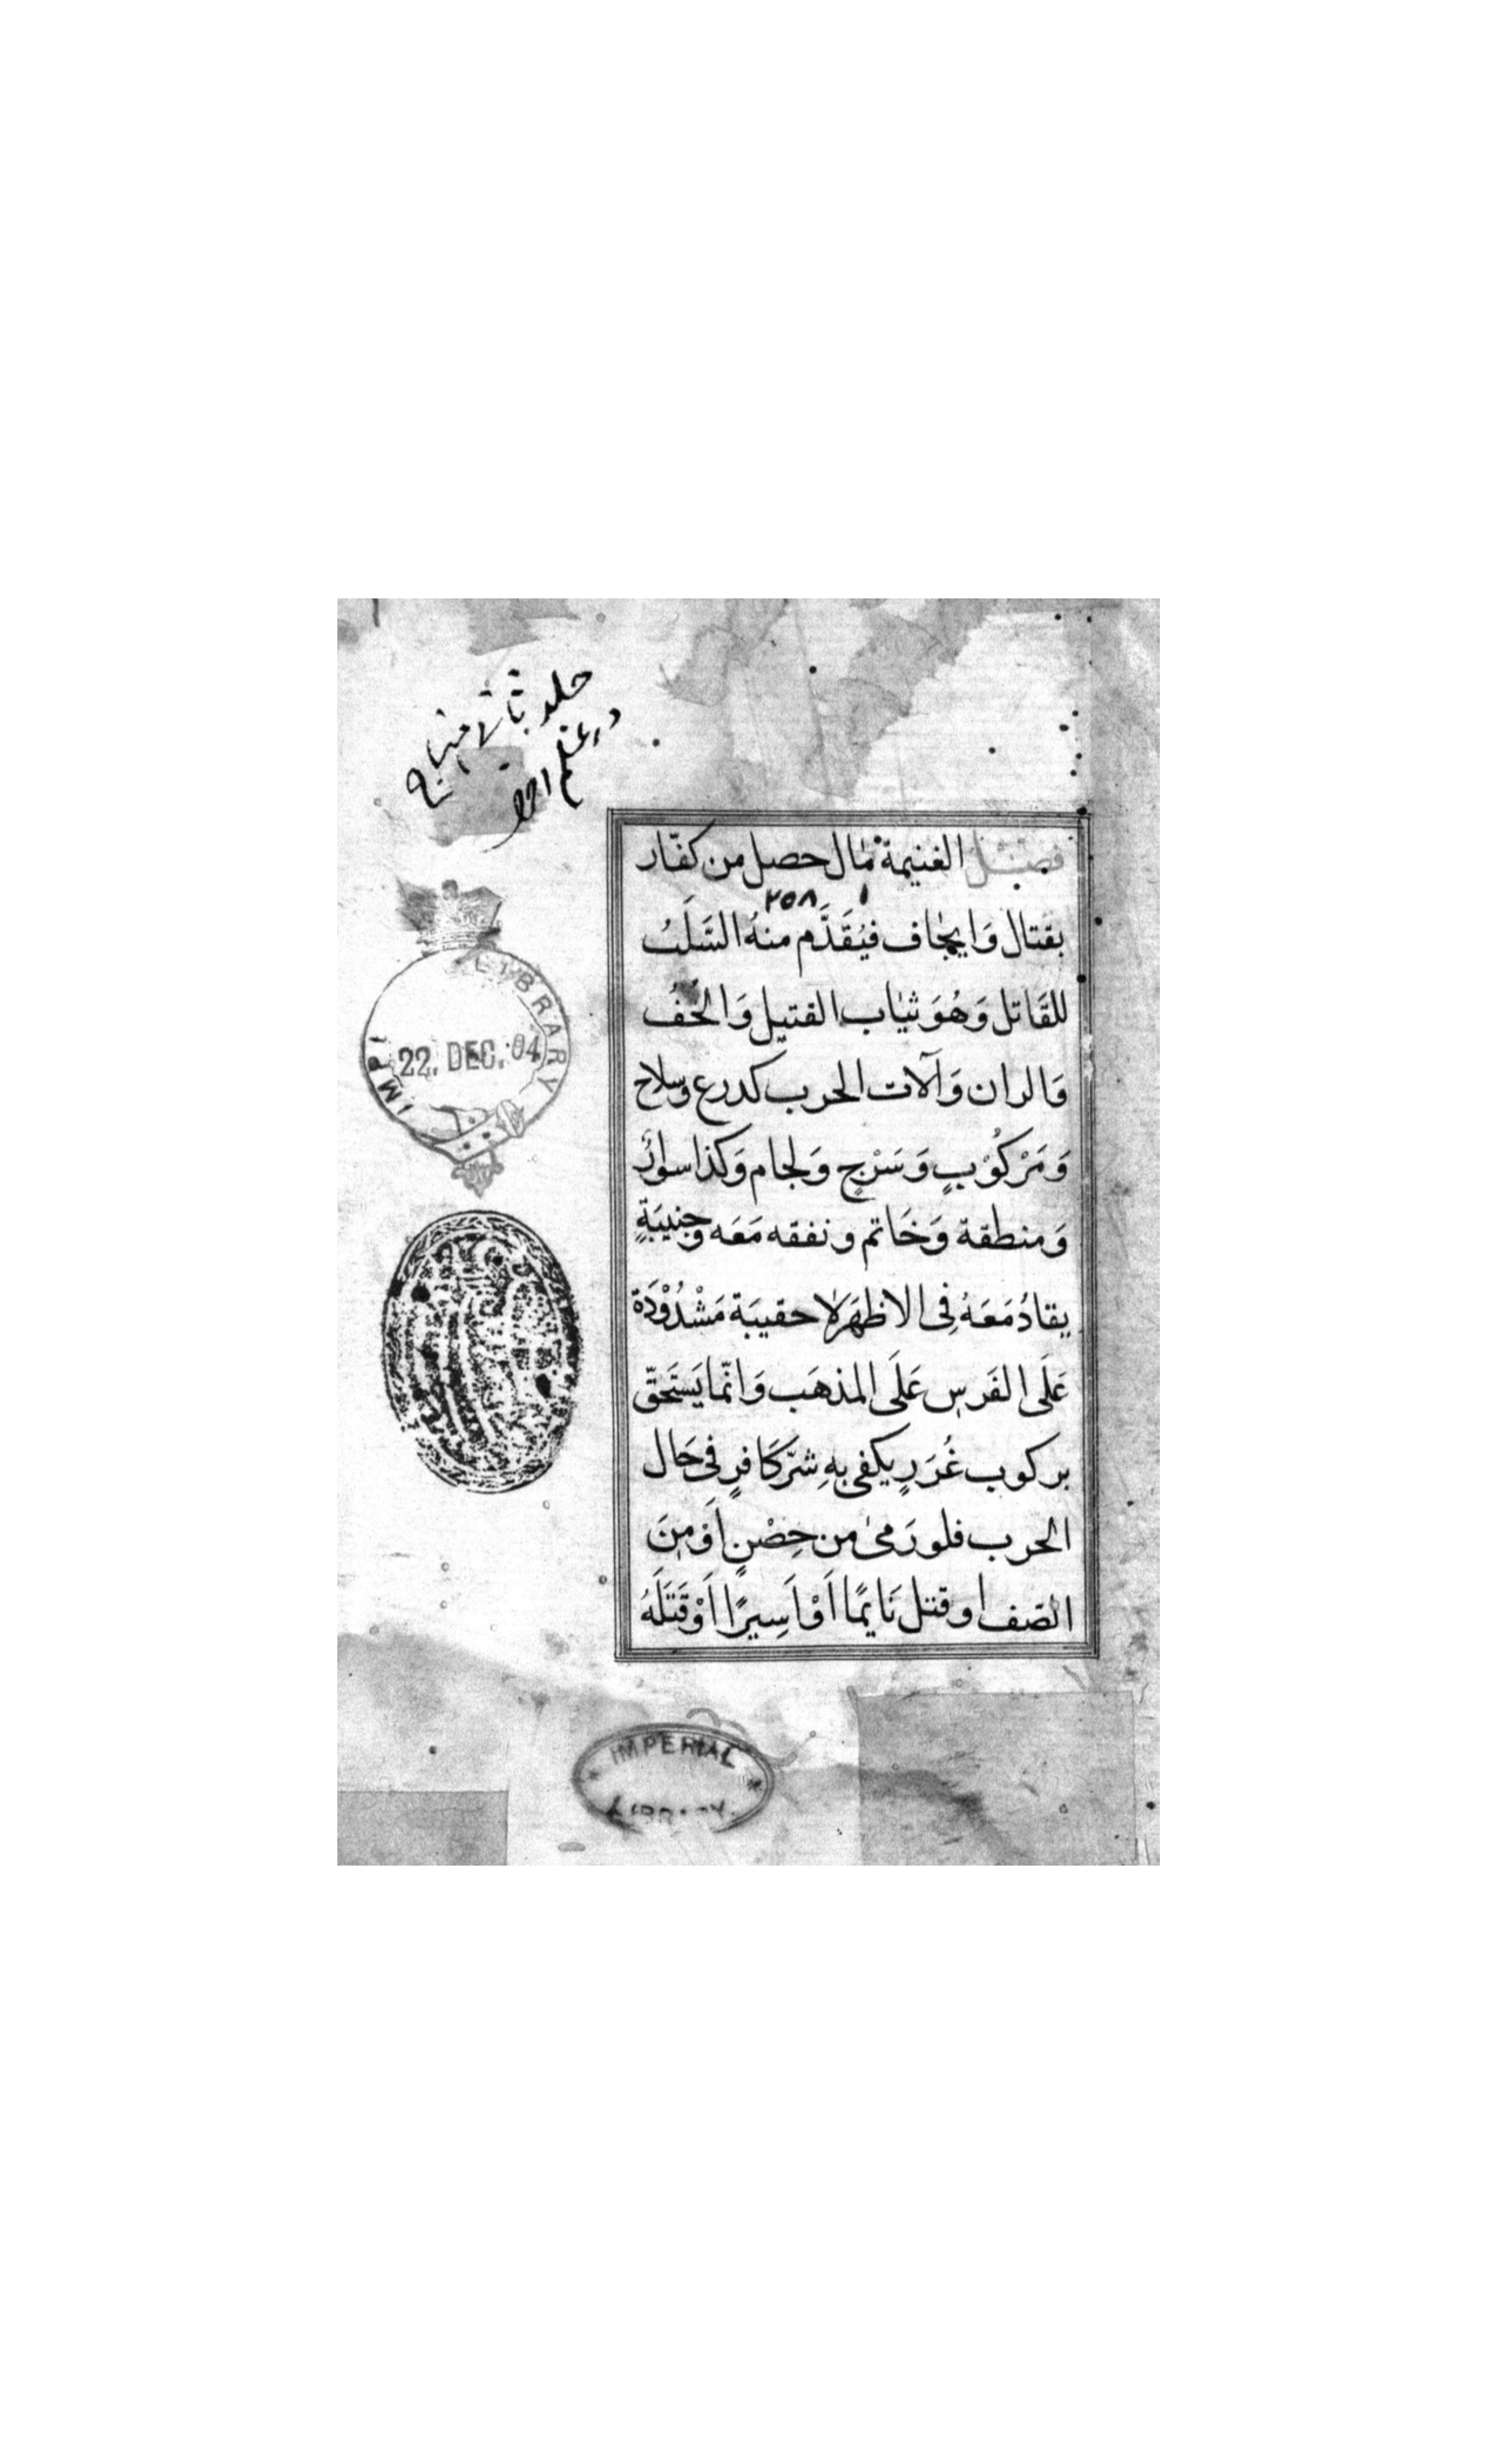 جلد ثاني منهاج
در علم
فصل الغنيمة مال حصل من كفّار
٢٥٨ ١
بقتال وَايجاف فيُقَدَّم منهُ السَّلَبُ
للقَاتل وَهُوَ ثياب القتيل وَالخُفُ
وَالران وَآلات الحرب كدرع وسلاح
وَمَرْكُوْبٍ وَسَرْجٍ وَلجام وَكذا سوارٌ
وَمنطقة وَخَاتم ونفقه مَعَه وجنيبَةٍ
يقادُ مَعَهُ فِى الاظهَر لا حقيبَة مَشْدُوْدَة
عَلَى الفَرَس عَلَى المذهَب وَانّما يَستَحَقّ
بركوب غُرَرٍ يكفى بِهِ شرّ كَافرٍ فى حَال
الحرب فلو رَمىٰ من حِصْنٍ اَوْ مِنَ
الصّف او قتل نَايمًا اَوْ اَسِيرًا اَوْ قَتَلَهُ
LIBRARY
22. DEC. 04
IMPE
IMPERIAL
LIBRARY.